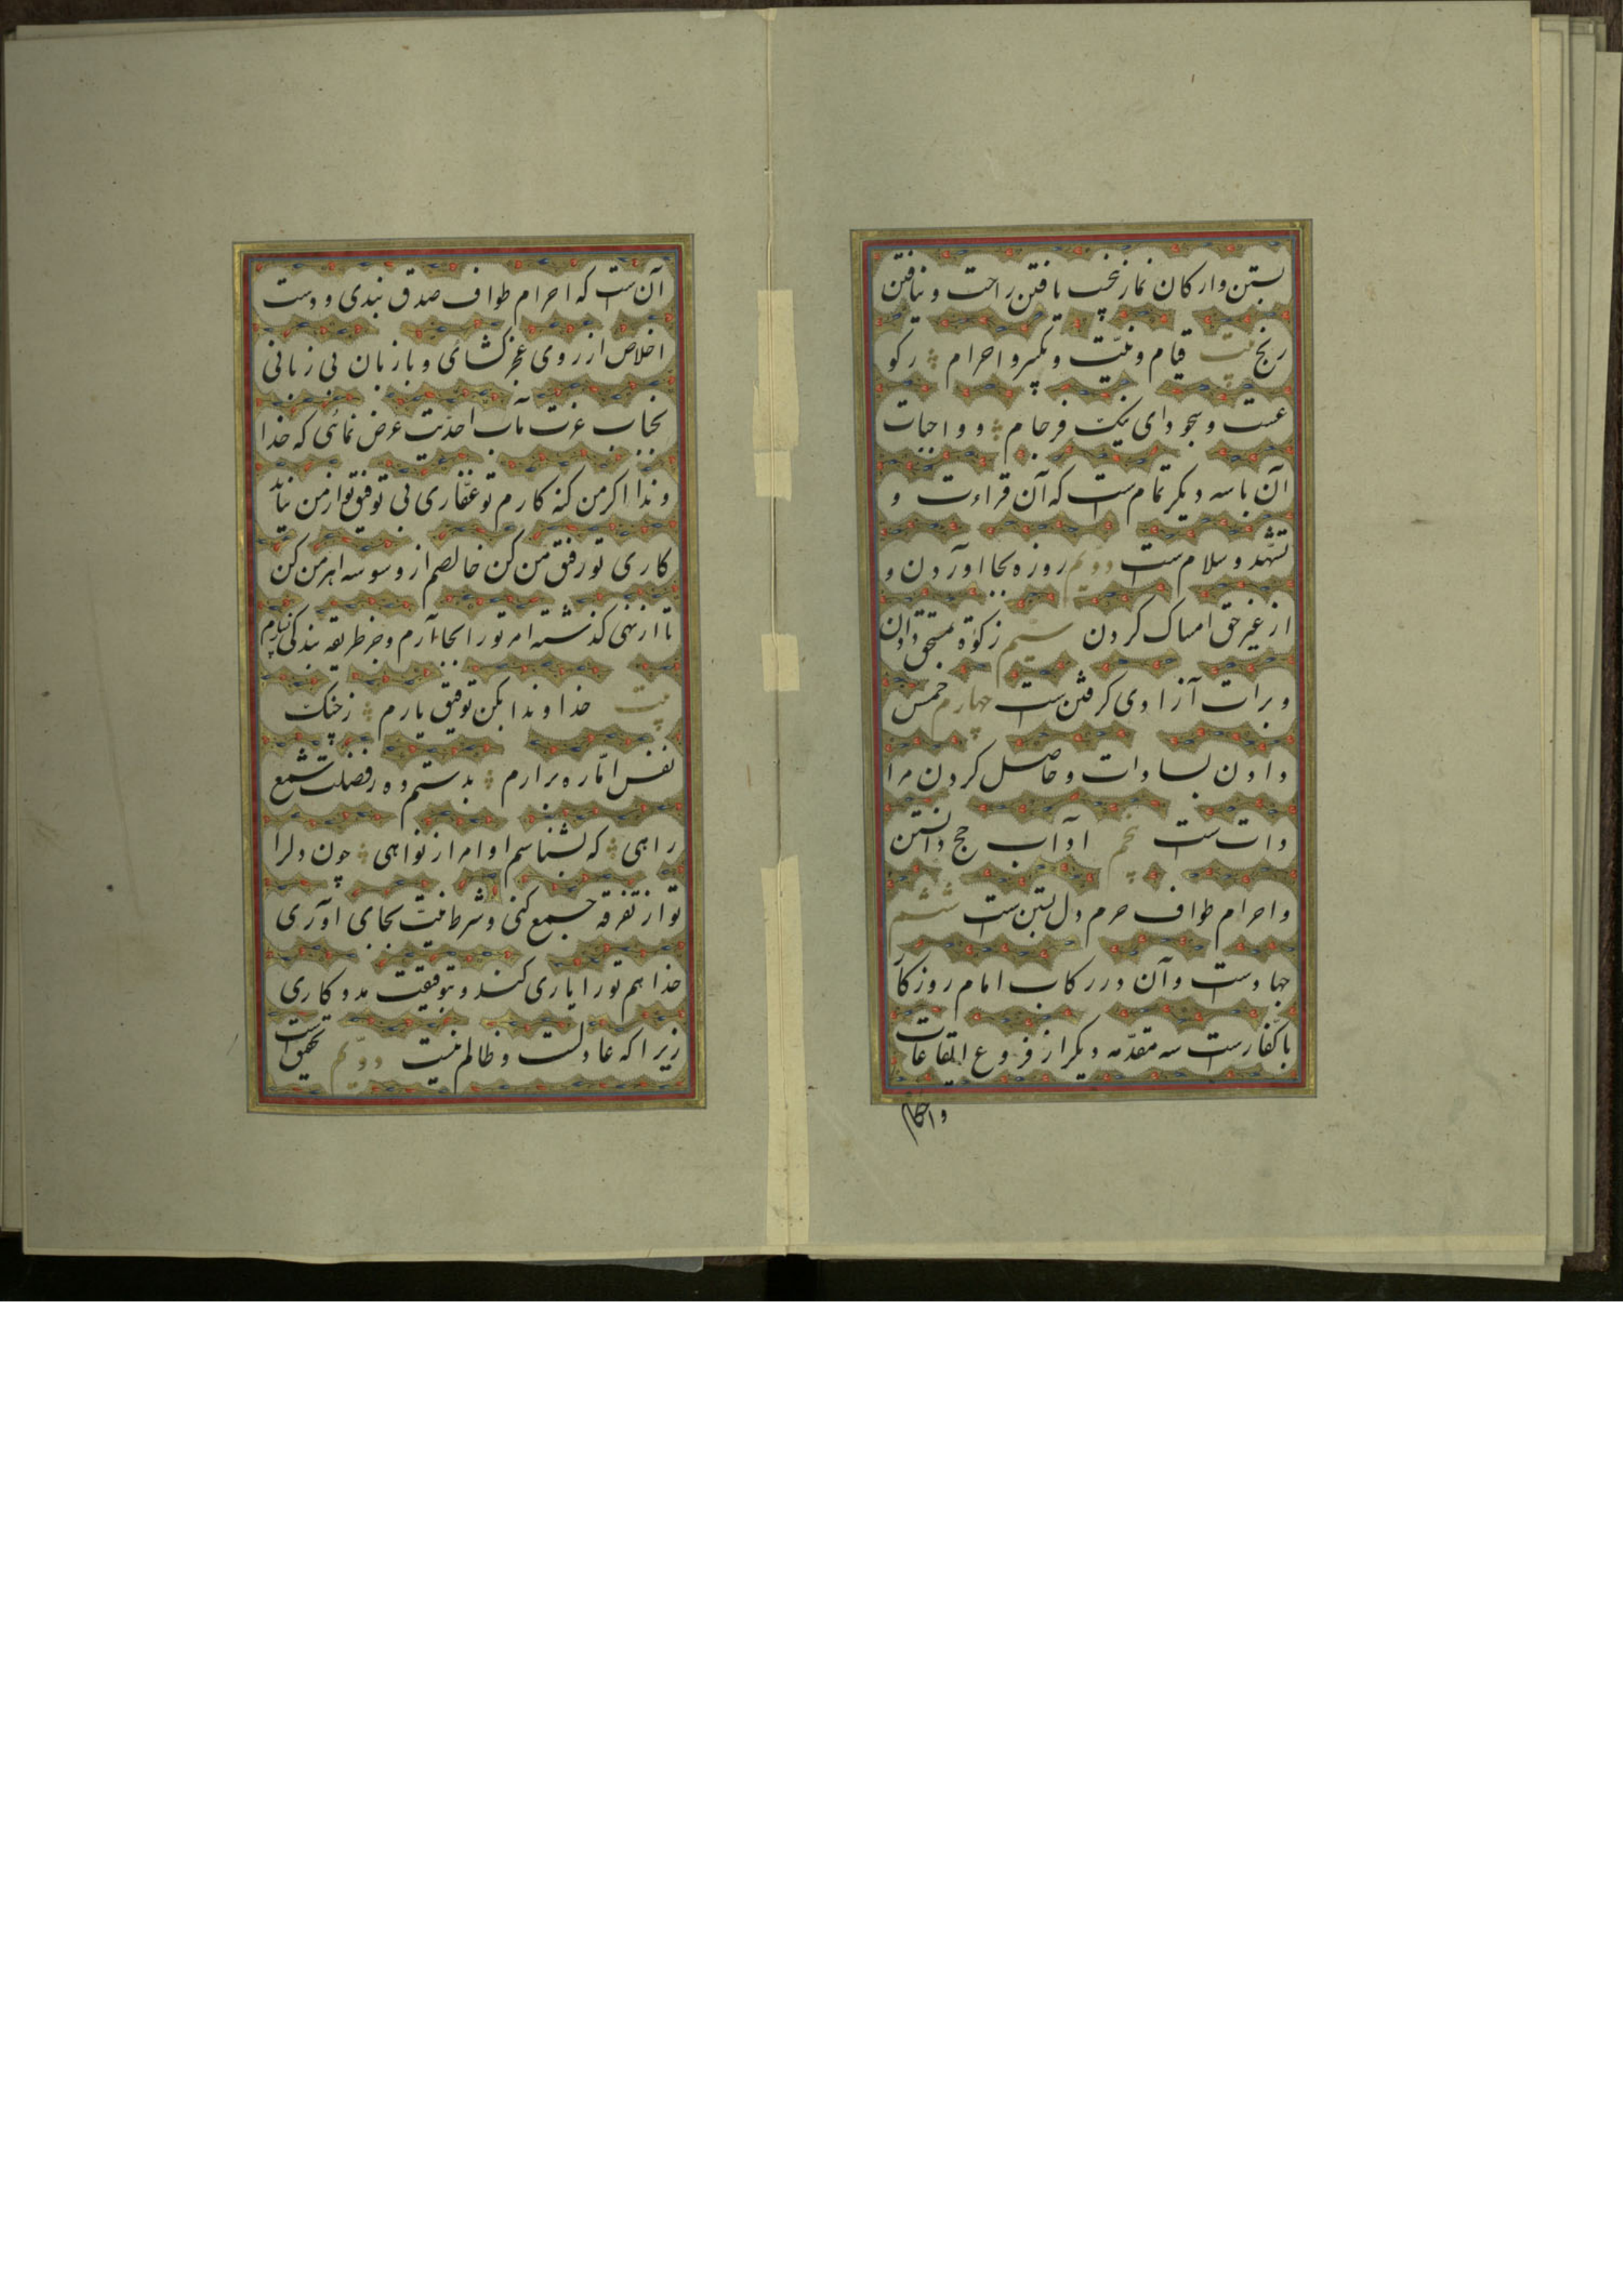 بستن و ارکان نماز پنجست یافتن راحت و نیافتن
رنج بیت قیام و نیّت و تکبیر و احرام رکو
عست و سجود ای نیک فرجام و واجبات
آن با سه دیکر تمامست که آن قراءت و
تشهّد و سلامست دویّم روزه بجا اوردن و
از غیر حق امساک کردن سیّم زکوٰة بمستحق دادن
و برات آزادی کرفتن ست چهارم خمس
دادن بسادات و حاصل کردن مرا
دات ست پنجم اداب حج دانستن
و احرام طواف حرم دل بستن ست ششم
جهادست و آن در رکاب امام روزکا
با کفّارست سه مقدّمه دیکر از فروع ایقاعات
و احکام
آن ست که احرام طواف صدق بندی و دست
اخلاص از روی عجز کشائی و با زبان بی زبانی
بجناب عزت مآب احدّیت عرض نمائی که خدا
وندا اکر من کنه کارم تو غفّاری بی توفیق تو از من نیاید
کاری تو رفیق من کن خالصم از وسوسه اهرمن کن
تا از نهی کذشته امر تو را بجا آرم و جز طریقه بندکی نسپارم
بیت خداوندا بکن توفیق یارم ز جنک
نفس امّاره برارم بدستم ده ز فضلت شمع
راهی که بشناسم اوامر از نواهی چون دلرا
تو از تفرقه جمع کنی و شرط نیّت بجای اوری
خدا هم تو را یاری کند و بتوفیقت مددکاری
زیرا که عادلست و ظالم نیست دویّم تحقیق است